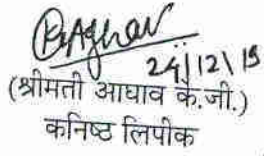 24/12/19
(श्रीमती आघाव के.जी.)
कनिष्ठ लिपीक